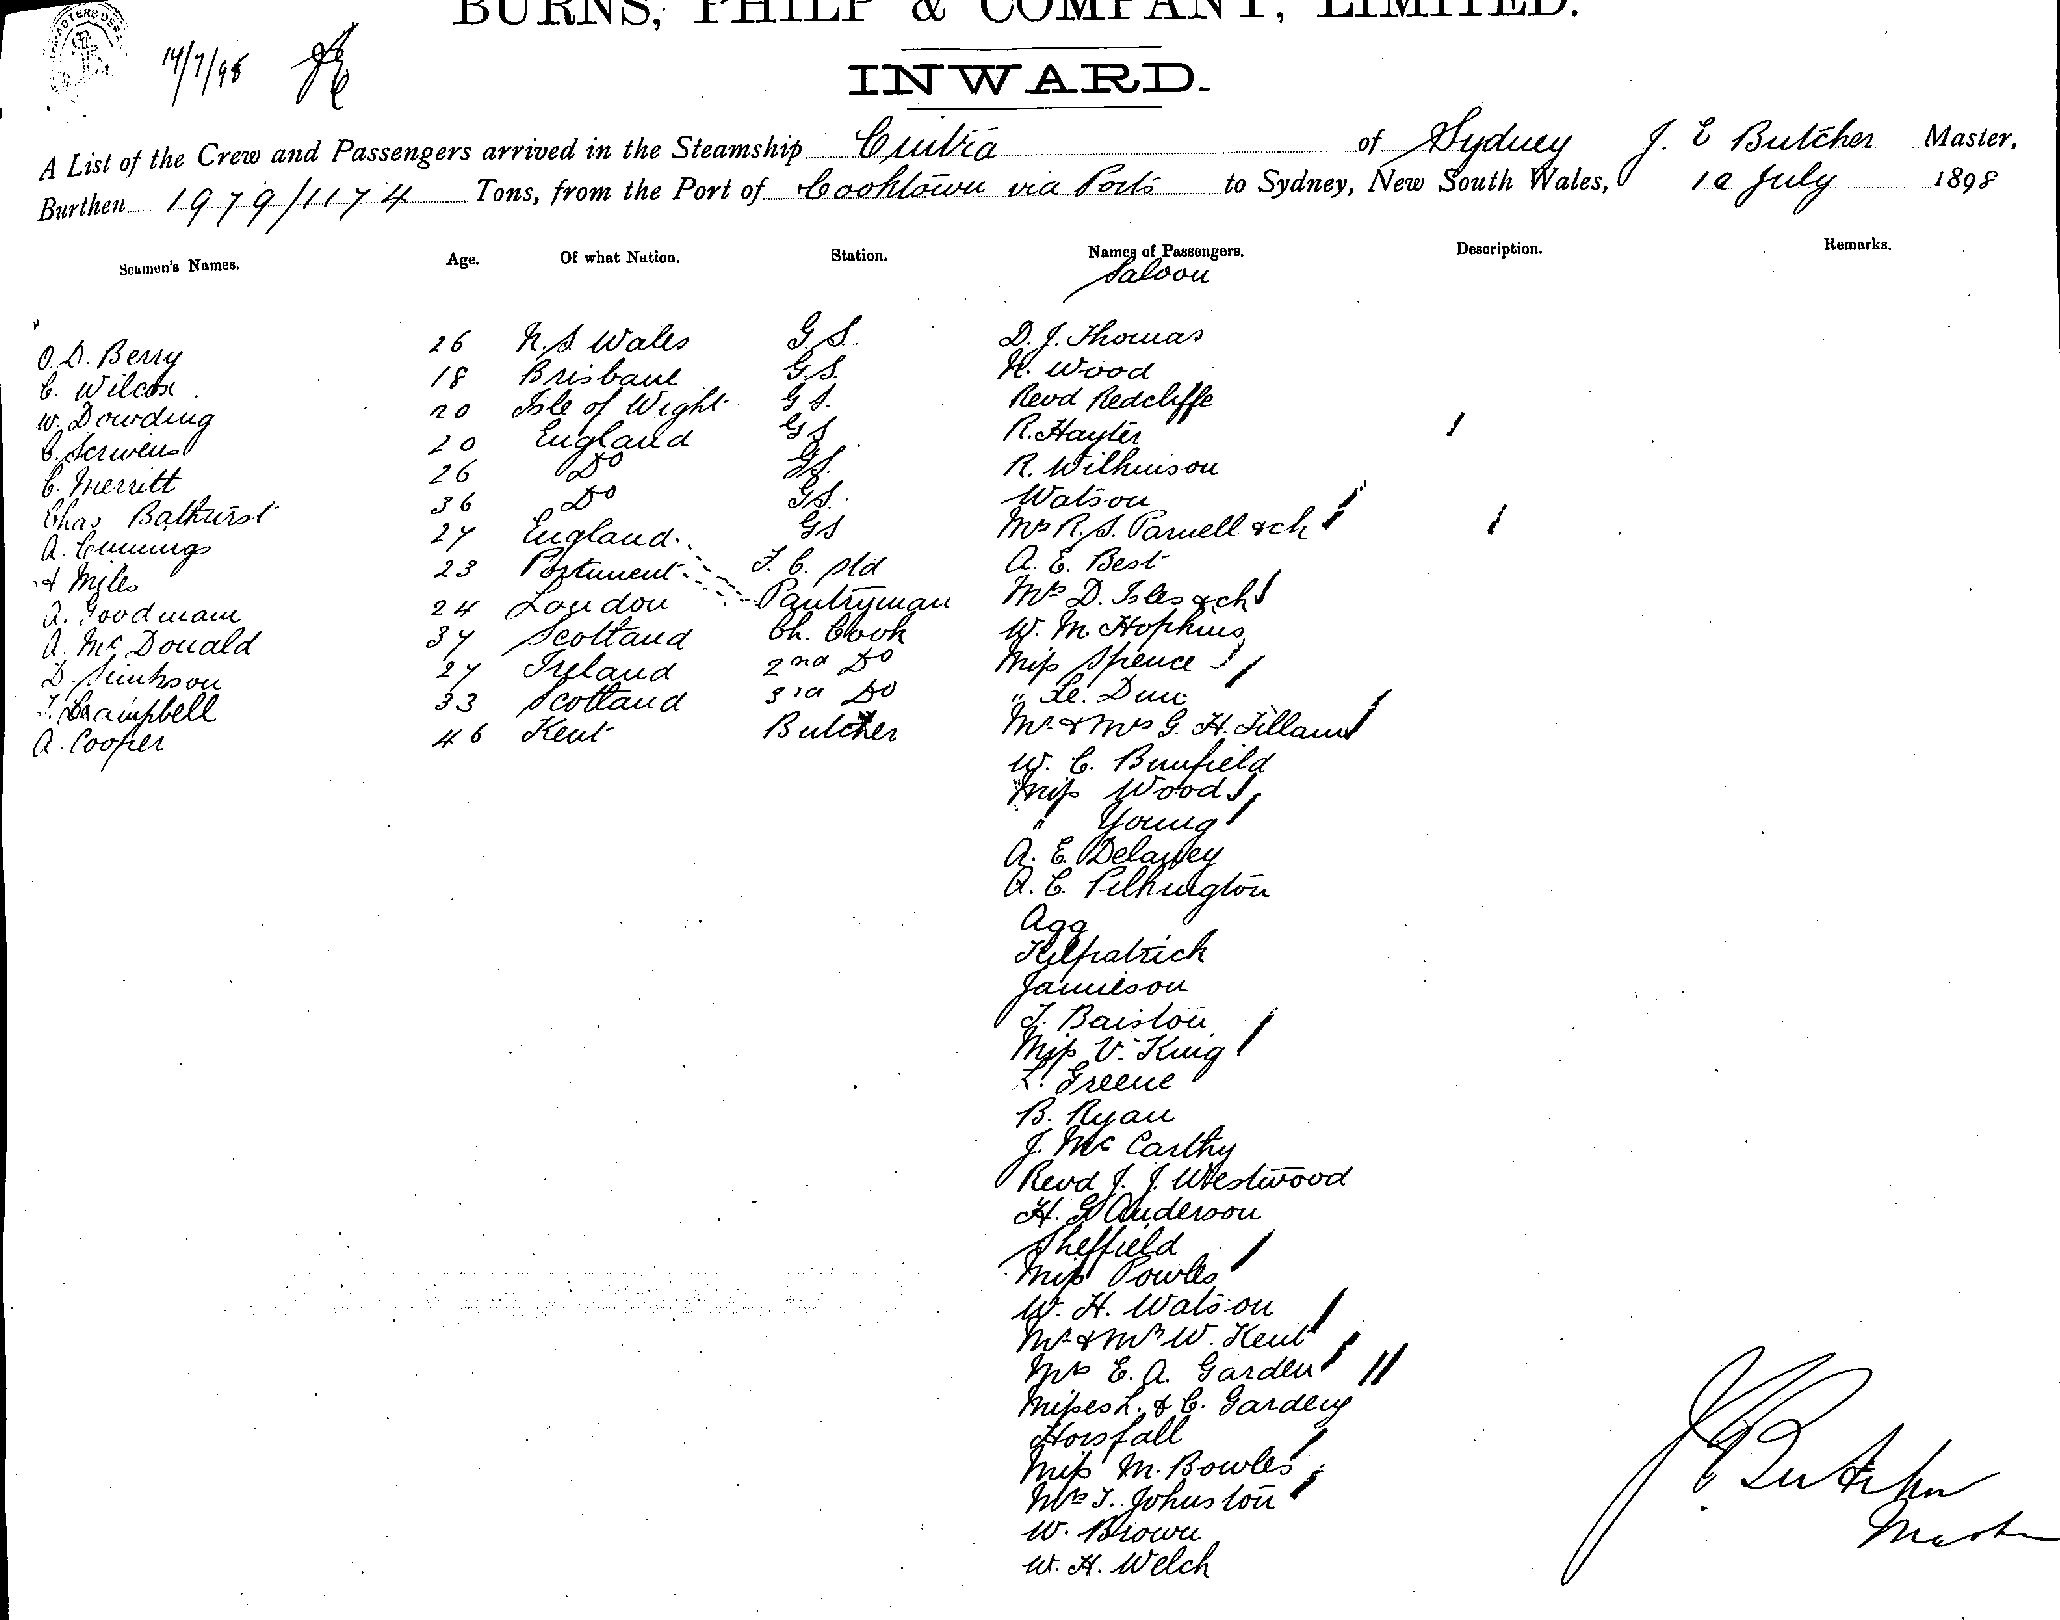 BURNS, PHILP & COMPANY, LIMITED.
14/7/98
INWARD.
A List of the Crew and Passengers arrived in the Steamship Cintra of Sydney J. E Butcher Master.
Burthen 1979/1174 Tons, from the Port of Cooktown via Ports to Sydney, New South Wales, 10 July 1898
Seamen's Names. Age. Of what Nation. Station. Names of Passengers. Description. Remarks.
Saloon
O. D. Berry 26 N. S Wales G. S. D. J. Thomas
C. Wilcox 18 Brisbane G. S. H. Wood
W. Dowding 20 Isle of Wight G S. Revd Redcliffe
C. Scrivens 20 England G S R. Hayter
C. Merritt 26 Do G S. R. Wilkinson
Chas Bathurst 36 Do G S. Watson
A. Cumings 27 England G S Mrs R. S. Parnell & ch
Miles 23 F. C. Std A. E. Best
A. Goodman 24 London Pantryman Mrs D. Isles & ch
A. McDonald 37 Scotland Ch. Cook W. M. Hopkins
D. Simkson 27 Ireland 2nd Do Miss Spence
T. Campbell 33 Scotland 3rd Do " Le. Dun
A. Cooper 46 Kent Butcher Mr & Mrs G. H.
W. C. Bunfield
Miss Wood
" Young
A. E. Delaney
A. C. Pilkington
Agg
Kilpatrick
Jamieson
T. Baiston
Miss V. King
L. Greene
B. Ryan
J. McCarthy
Revd J. J. Westwood
H. G Anderson
Sheffield
Miss Powles
W. H. Watson
Mr & Mrs W. Kent
Mrs E. A. Garden
Misses L. & C. Garden
Horsfall
Miss M. Bowles
Mrs T. Johnston
W. Brown
W. H. Welch
J E Butcher
Master